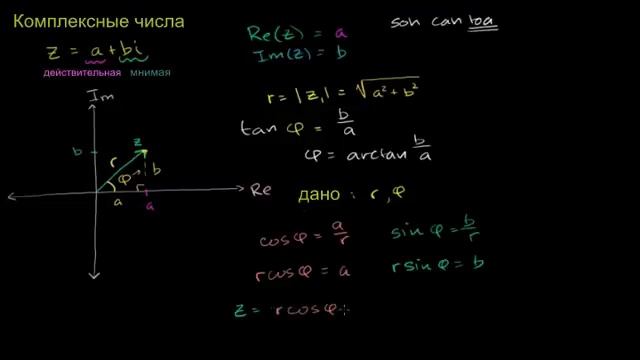 Комплексные числа
z = a + bi
действительная мнимая
Re(z) = a
Im(z) = b
soh cah toa
r = |z₁| = √(a² + b²)
tan φ = b/a
φ = arctan b/a
Im
b
z
r
φ
r
b
a
a
Re
дано : r, φ
cos φ = a/r
sin φ = b/r
r cos φ = a
r sin φ = b
z = r cos φ